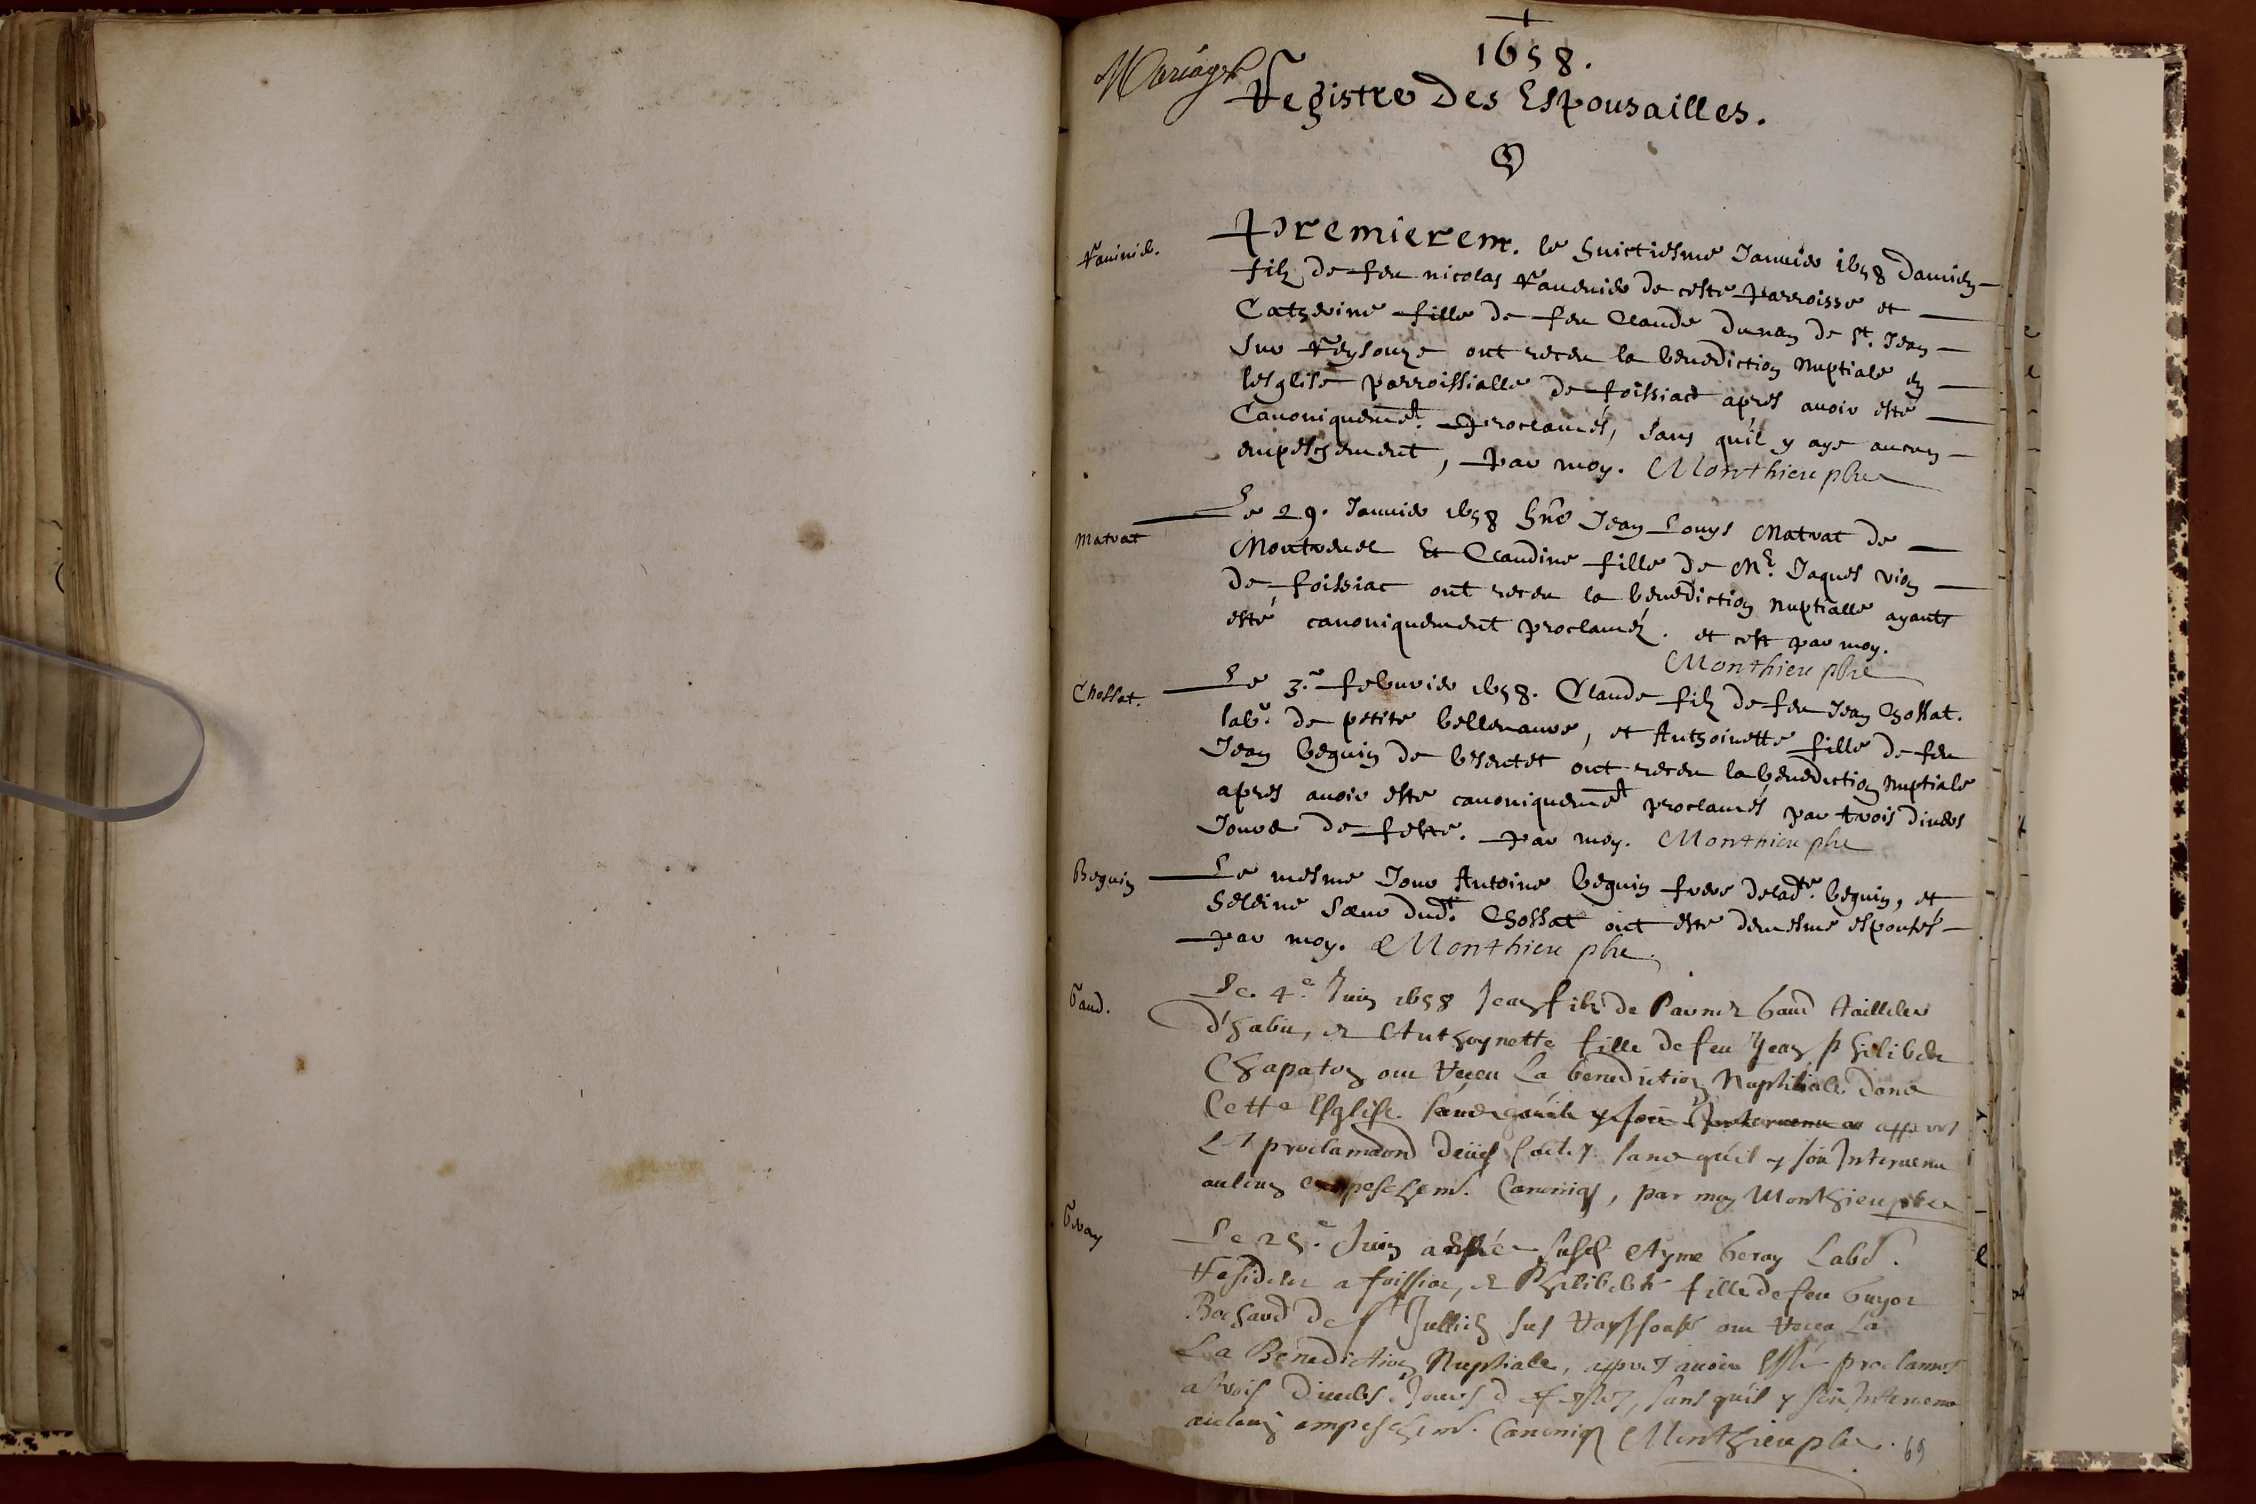 1658.
Mariages
Registre Des Espousailles.
Premierem. le huictiesme Januier 1658 Damien
Rauinier.
filz de feu nicolas Rauenier de ceste Parroisse et
Catherine fille de feu Claude dunan de St. Jean
sur Reysouze ont receu la benediction nuptiale en
lesglise parroissialle de foissiact apres auoir esté
Canoniquemet. Proclamés, sans qu'il y aye aucun
empeschement, Par moy. Monthieu pbre
Le 29. Januier 1658 hne Jean Louys Matrat de
Matrat
Montreuel Et Claudine fille de Mr. Jaques vion
de foissiac ont receu la benediction nuptialle ayants
esté canoniquement proclaméz. et cest par moy.
Monthieu pbre
Le 3.e febuvrier 1658. Claude filz de feu Jean Chossat.
Chossat.
labr. de petite bellenauve, et Anthoinette fille de feu
Jean beguin de besentet ont receu la benediction nuptiale
apres auoir este canoniquemet proclamés par trois diuers
Jours de feste. Par moy. Monthieu pbre
Le mesme Jour Antoine beguin frere deladte. beguin, et
Beguin
heleine sœur dudt. Chossat ont este demesme espousés
Par moy. Monthieu pbre.
Le 4.e Juin 1658 Jean filz de Pavnez Gaud tailleler
Gaud.
d'habis, et Anthoynette fille de feu Jean philiber
Chapaton ont Receu La benediction Nuptiale dans
Cette Esglise. appres
Let proclamaond sans qu'il y soit Interuenu
aulcun empeschemt. Canoniq, par moy Monthieu pbre
Le 25.e Juin Ayme Geray Labr.
Geray
Residents a foissiac, et Philiberte fille de feu Guyot
Bochard de St Jullien sus Rayssouse ont Receu La
La Benediction Nuptiale, appres auoir Esté proclames
a trois diuerses Jours de festes, sans qu'il y soit Interuenu
aulcun empeschemt. Canoniq Monthieu pbre.
69